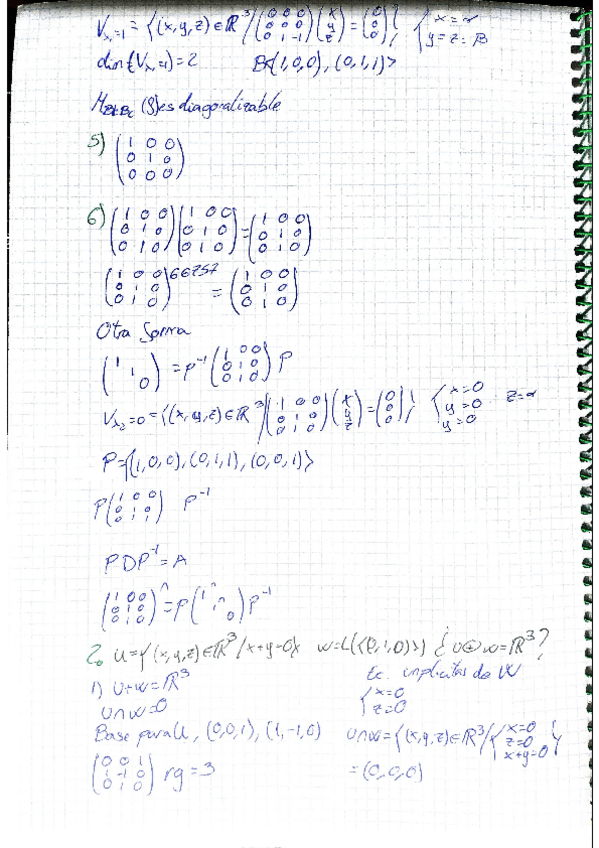 V_{λ=1} = {(x,y,z) ∈ ℝ³ / (0 0 0; 0 0 0; 0 1 -1)(x; y; z) = (0; 0; 0)} { x = α; y = z = β
dim(V_{λ=1}) = 2 B<(1,0,0), (0,1,1)>
(S) es diagonalizable
5) (1 0 0; 0 1 0; 0 0 0)
6) (1 0 0; 0 1 0; 0 1 0)(1 0 0; 0 1 0; 0 1 0) = (1 0 0; 0 1 0; 0 1 0)
(1 0 0; 0 1 0; 0 1 0)^66757 = (1 0 0; 0 1 0; 0 1 0)
Otra forma
(1 ; 1 ; 0) = P⁻¹ (1 0 0; 0 1 0; 0 1 0) P
V_{λ₂}=0 = {(x,y,z) ∈ ℝ³ / (1 0 0; 0 1 0; 0 1 0)(x; y; z) = (0; 0; 0)} { x=0; y=0; y=0 z=α
P={(1,0,0), (0,1,1), (0,0,1)>
P(1 0 0; 0 1 0; 0 1 1) P⁻¹
PDP⁻¹ = A
(1 0 0; 0 1 0; 0 1 0)ⁿ = P(1ⁿ ; 1ⁿ ; 0) P⁻¹
2. U={(x,y,z) ∈ ℝ³ / x+y=0} W=L({(0,1,0)}) ¿ U⊕W=ℝ³?
1) U+W=ℝ³ Ec. implícitas de W
U∩W=0 { x=0; z=0
Base para U, (0,0,1), (1,-1,0) U∩W={(x,y,z) ∈ ℝ³ / { x=0; z=0; x+y=0 }
(0 0 1; 1 -1 0; 0 1 0) rg=3 =(0,0,0)